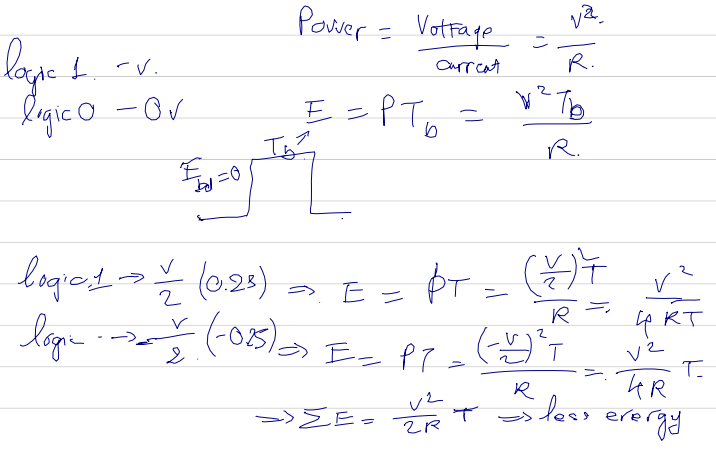 Power = Voltage / current = v². / R.
logic 1. - v.
logic 0 - 0v
E = PT_b = v² T_b / R.
T_b
E_bd = 0
logic 1 → v/2 (0.25) ⇒ E = PT = (v/2)² T / R = v² / 4RT
logic → -v/2 (-0.25) ⇒ E = PT = (-v/2)² T / R = v² / 4R T
⇒ ΣE = v² / 2R T ⇒ less energy